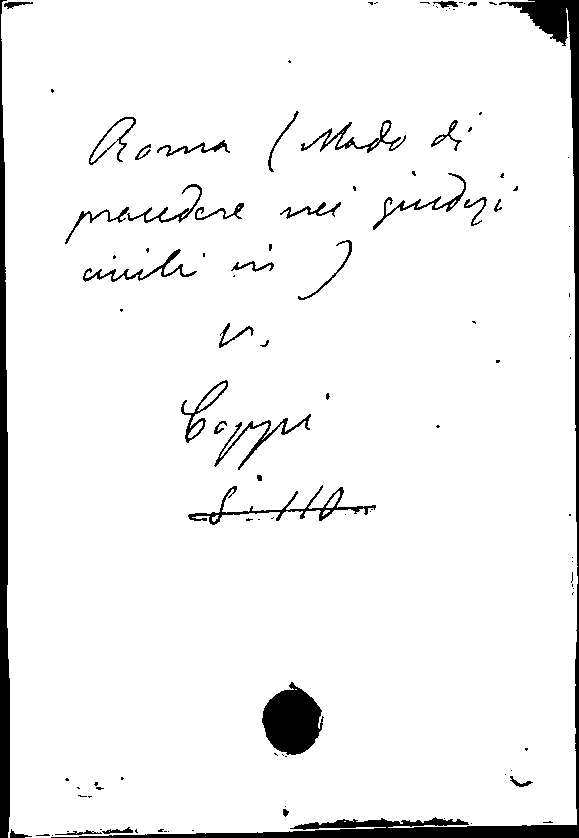 Roma (Modo di
procedere nei giudizi
civili in)
v.
Coppi
S. 110